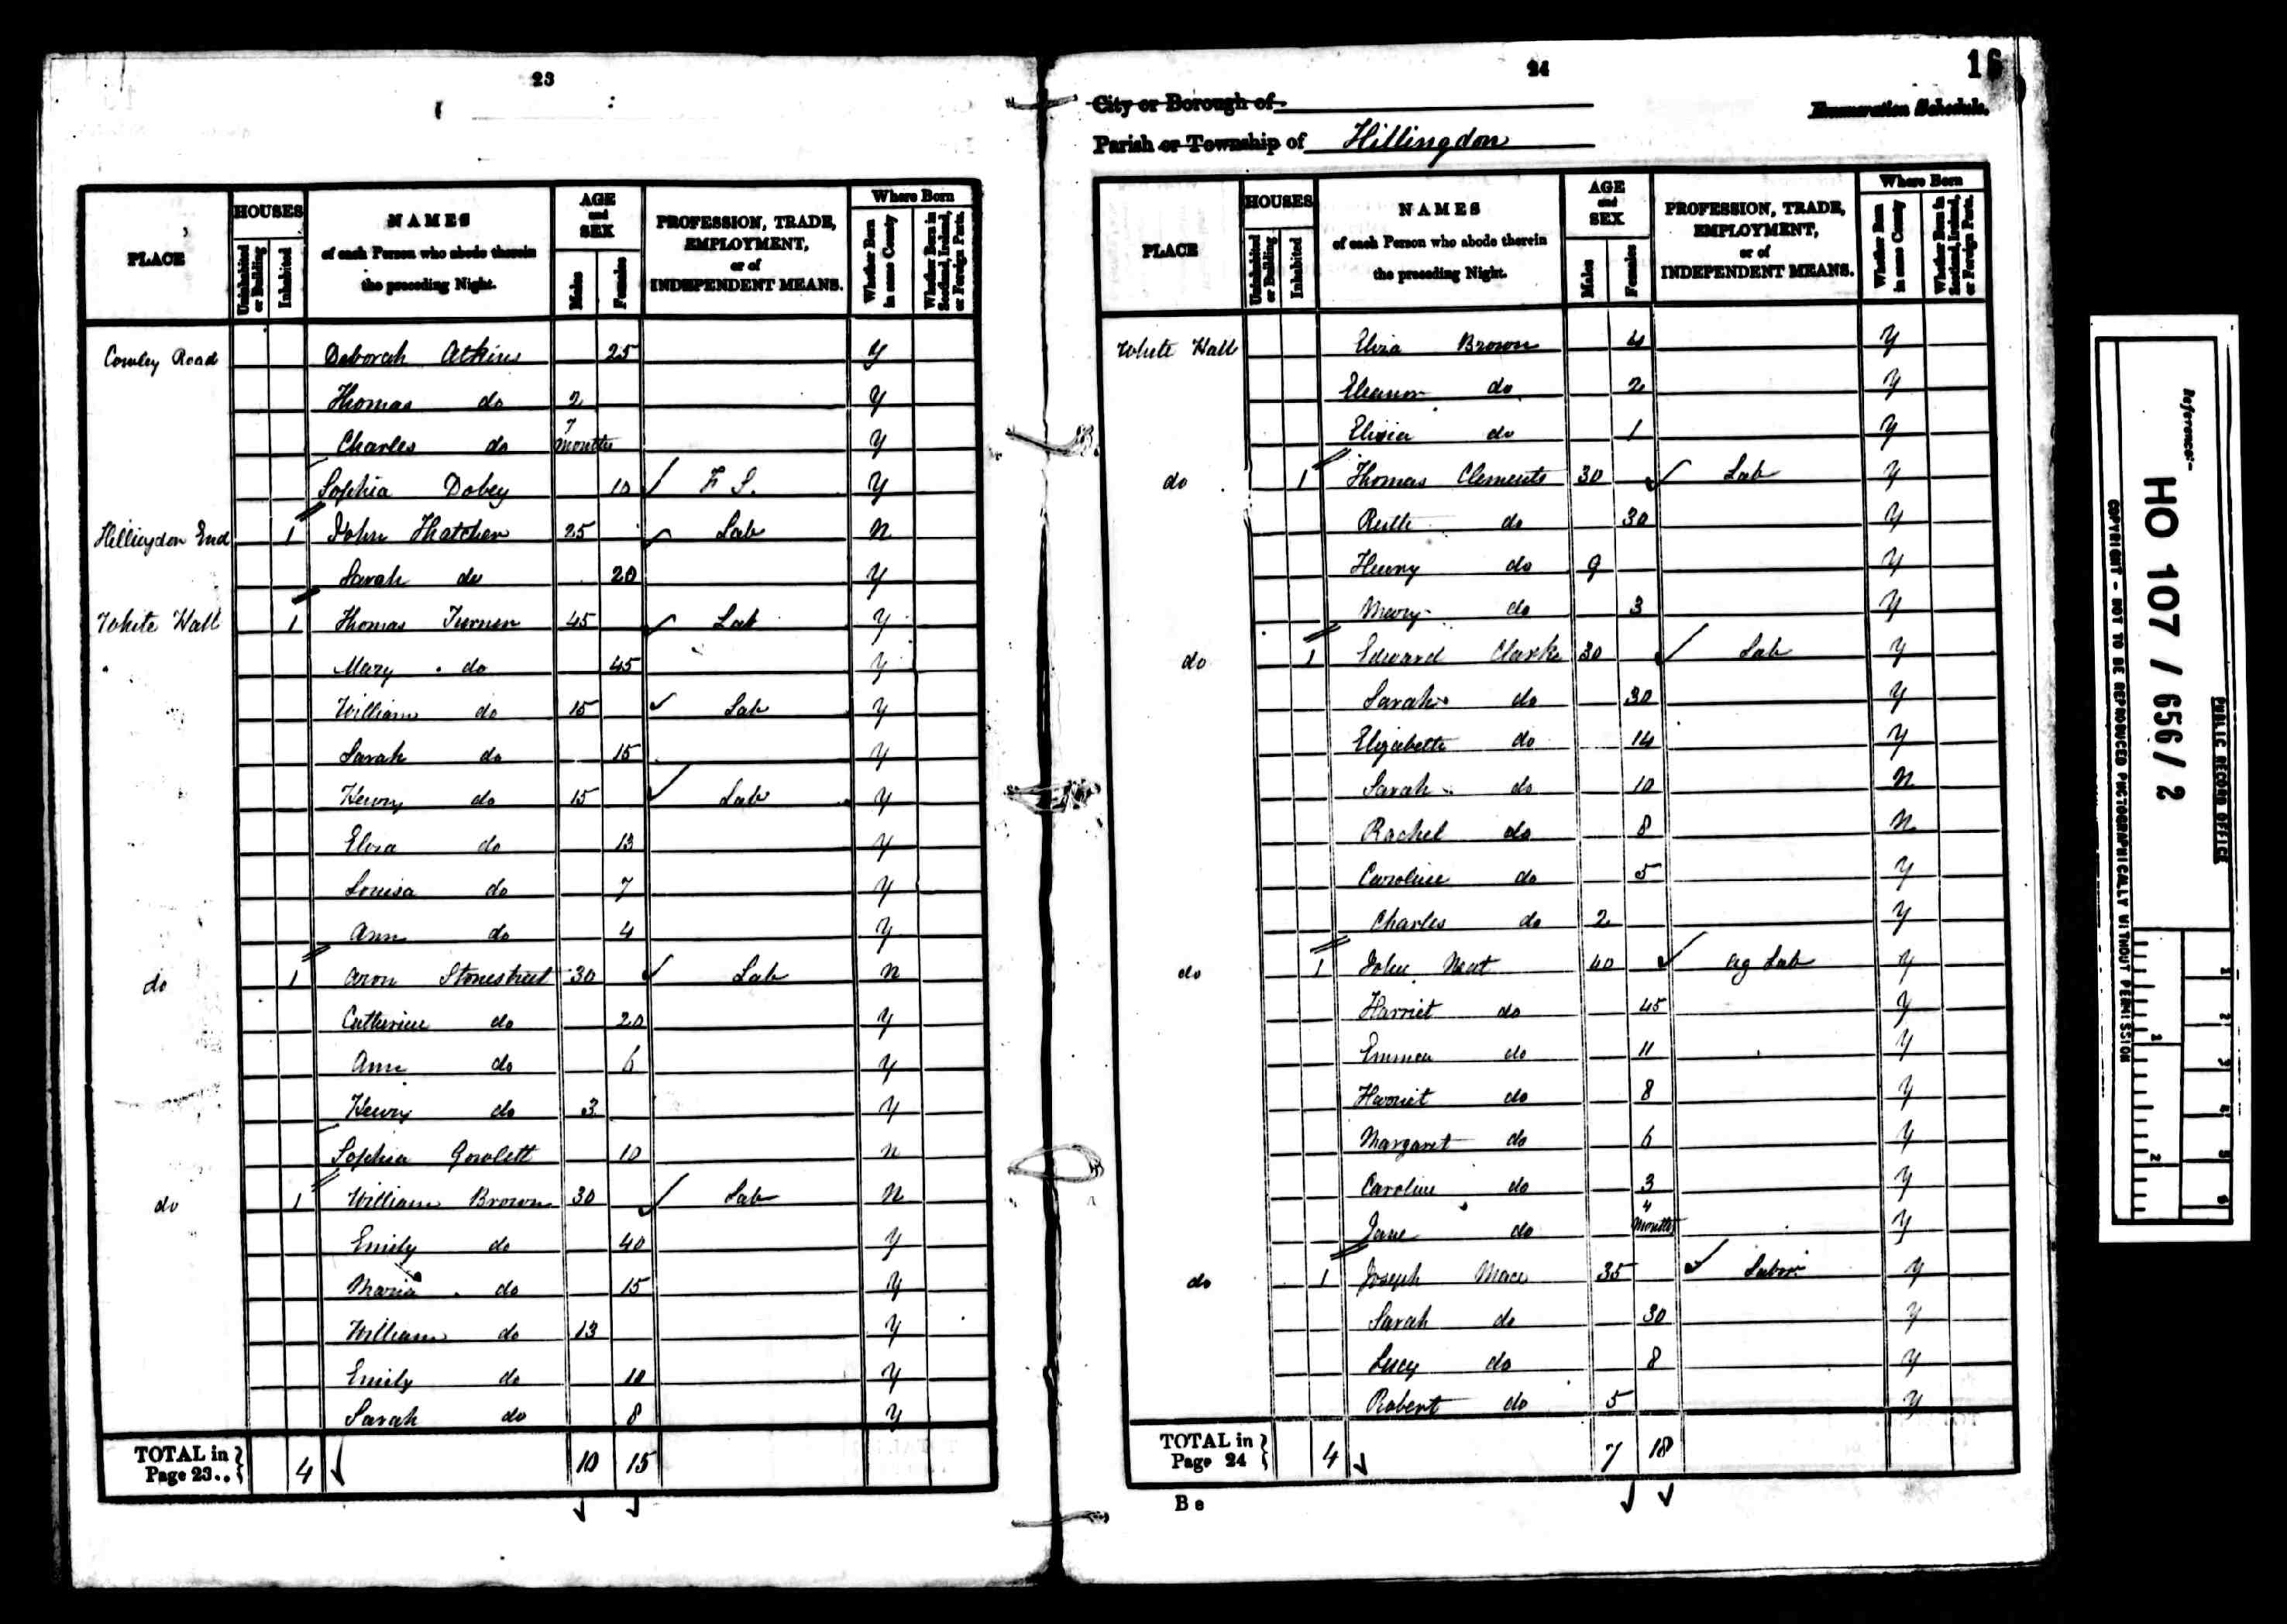 23
PLACE HOUSES Uninhabited or Building Inhabited NAMES of each Person who abode therein the preceding Night. AGE and SEX Males Females PROFESSION, TRADE, EMPLOYMENT, or of INDEPENDENT MEANS. Where Born Whether Born in same County Whether Born in Scotland, Ireland, or Foreign Parts.
Cowley Road Deborah Atkins 25 y
Thomas do 2 y
Charles do 7 Months y
Sophia Dobey 10 F S. y
Hillingdon End 1 John Thatcher 25 Lab n
Sarah do 20 y
White Hall 1 Thomas Turner 45 Lab y
Mary do 45 y
William do 15 Lab y
Sarah do 15 y
Henry do 15 Lab y
Eliza do 13 y
Louisa do 7 y
Ann do 4 y
do 1 Aron Stonestreet 30 Lab n
Catherine do 20 y
Ann do 6 y
Henry do 3 y
Sophia Gowlett 10 n
do 1 William Brown 30 Lab N
Emily do 40 y
Maria do 15 y
William do 13 y
Emily do 10 y
Sarah do 8 y
TOTAL in Page 23.. 4 10 15
24
16
City or Borough of
Enumeration Schedule.
Parish or Township of Hillingdon
PLACE HOUSES Uninhabited or Building Inhabited NAMES of each Person who abode therein the preceding Night. AGE and SEX Males Females PROFESSION, TRADE, EMPLOYMENT, or of INDEPENDENT MEANS. Where Born Whether Born in same County Whether Born in Scotland, Ireland, or Foreign Parts.
White Hall Eliza Brown 4 y
Eleanor do 2 y
do 1 y
do 1 Thomas Clements 30 Lab y
Ruth do 30 y
Henry do 9 y
Mary do 3 y
do 1 Edward Clarke 30 Lab y
Sarah do 30 y
Elizabeth do 14 y
Sarah do 10 N
Rachel do 8 N
Caroline do 5 y
Charles do 2 y
do 1 John 40 Ag Lab y
Harriet do 45 y
Emma do 11 y
Harriet do 8 y
Margaret do 6 y
Caroline do 3 y
Jane do 4 Months y
do 1 Joseph Mace 35 Labor y
Sarah do 30 y
Lucy do 8 y
Robert do 5 y
TOTAL in Page 24 4 7 18
B e
Reference:-
HO 107 / 656 / 2
PUBLIC RECORD OFFICE
COPYRIGHT - NOT TO BE REPRODUCED PHOTOGRAPHICALLY WITHOUT PERMISSION
1
2
1
2
3
4
5
6